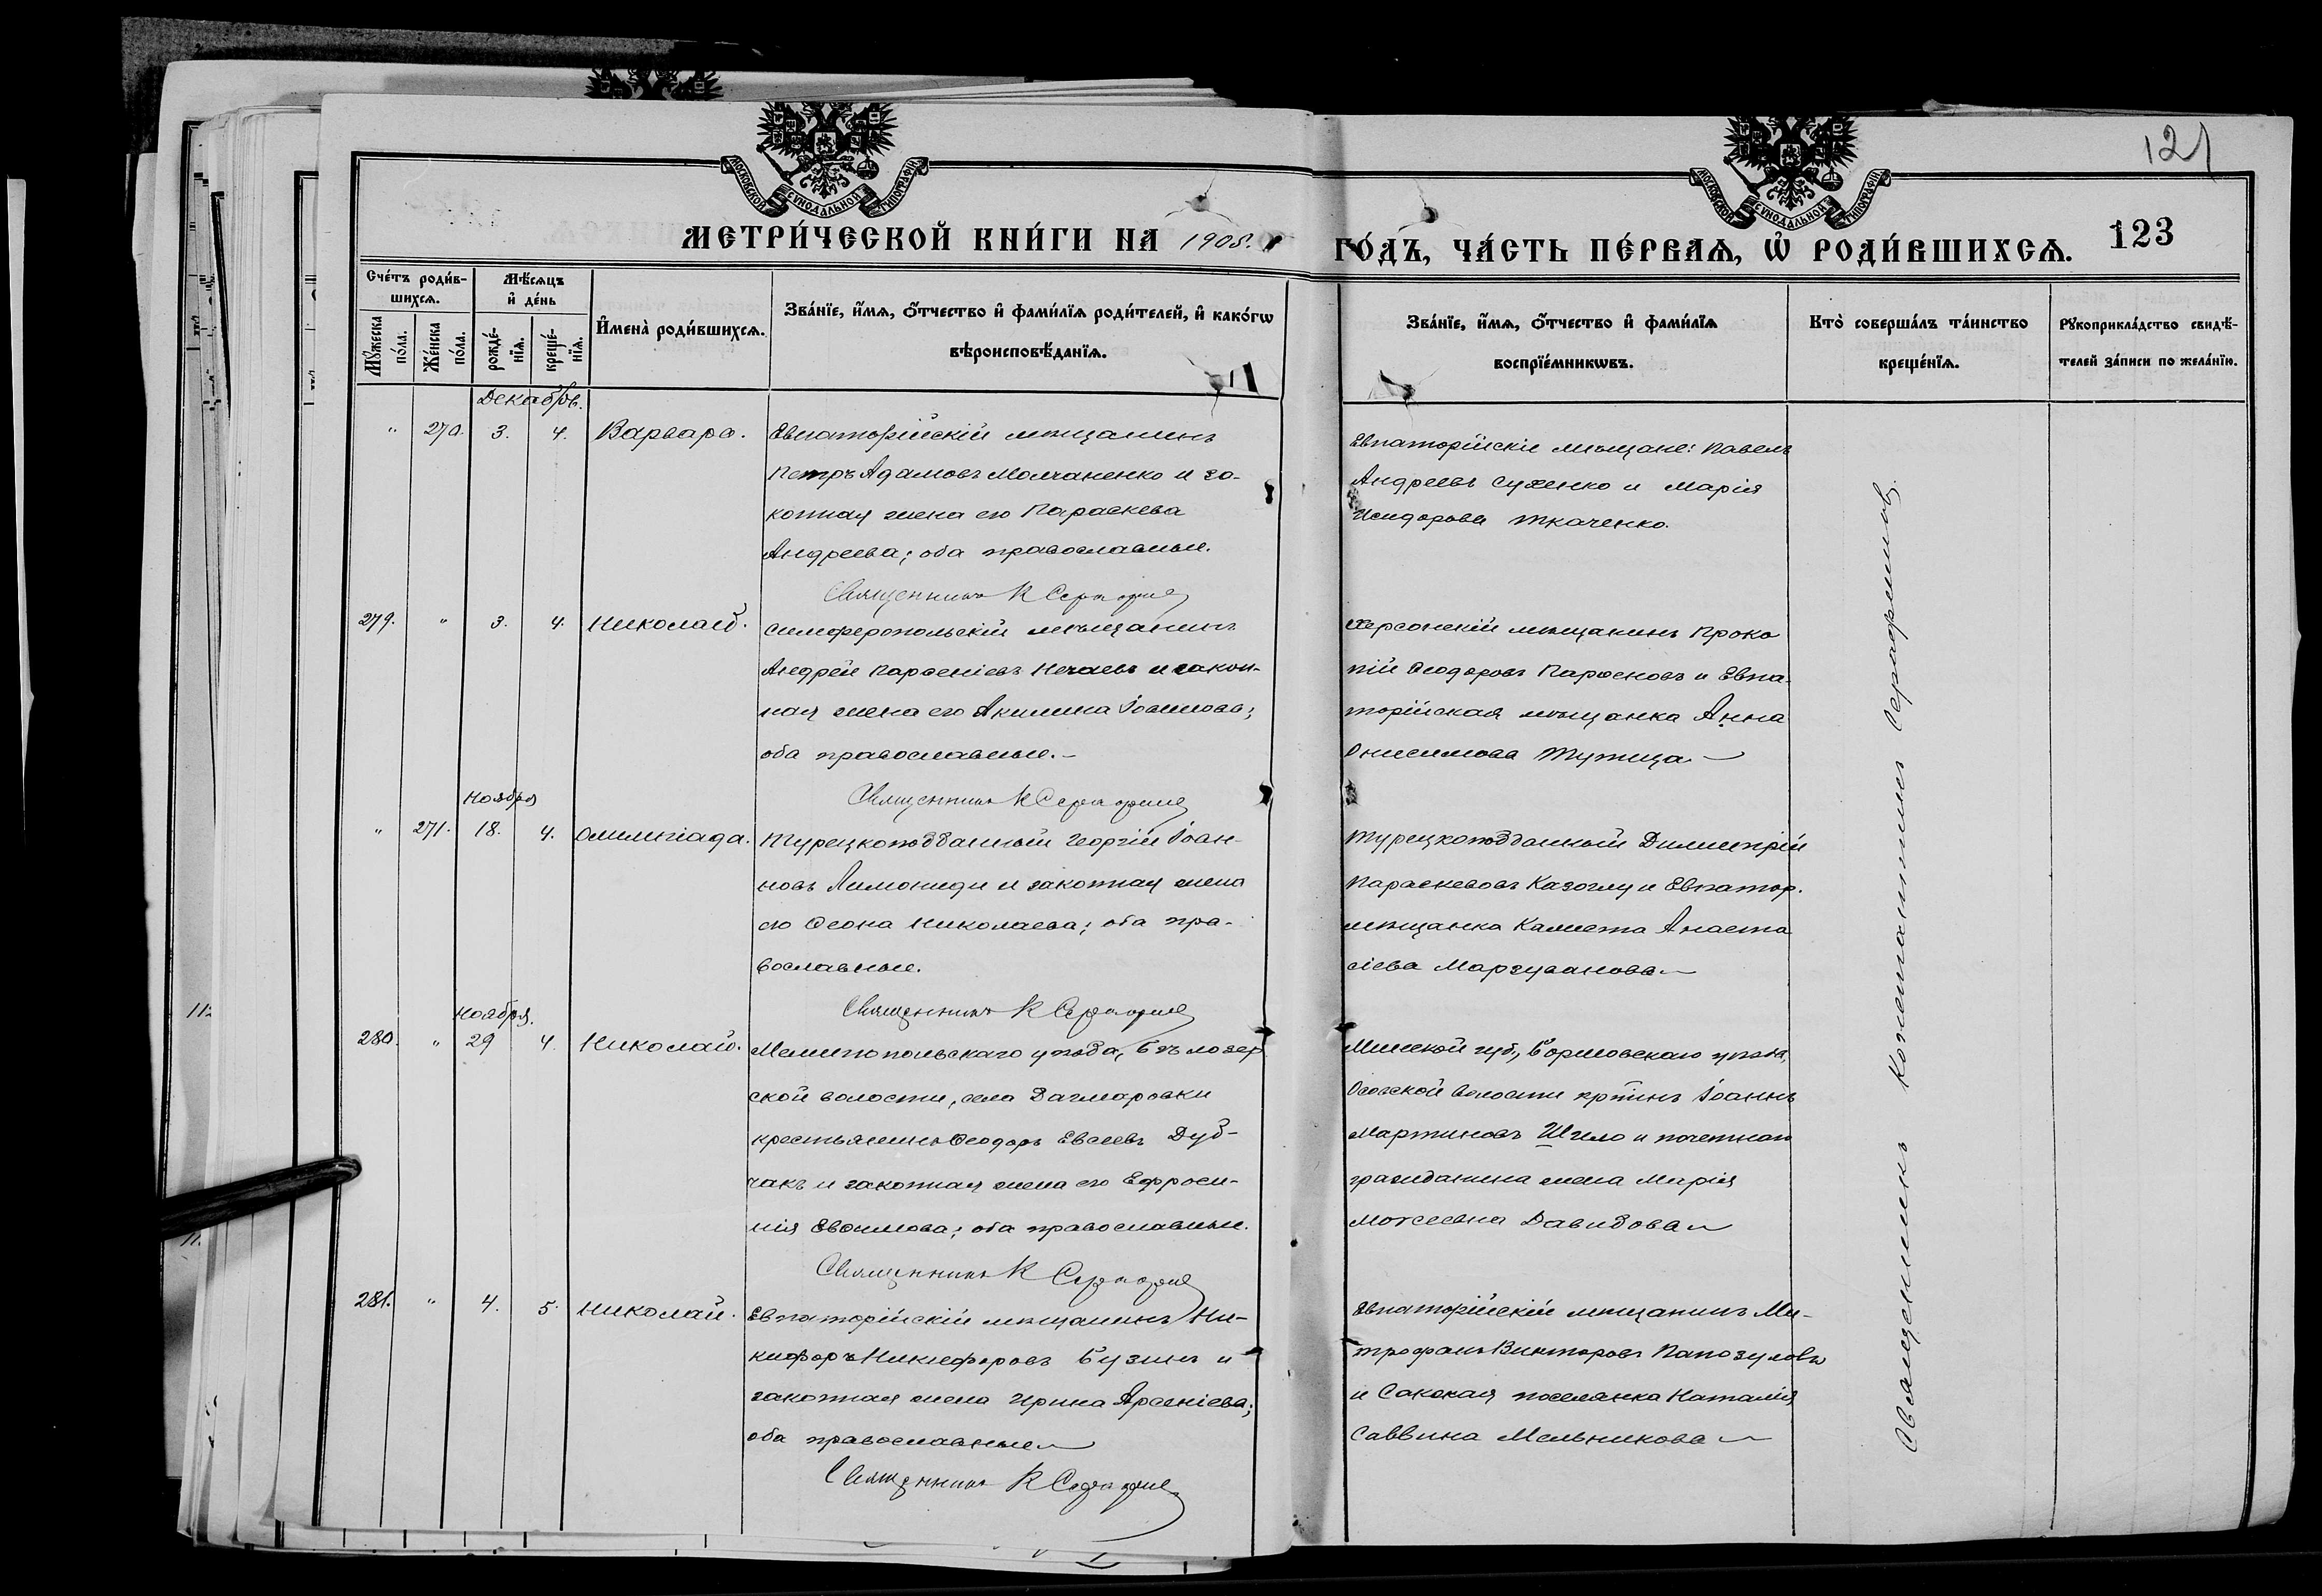 121
МОСКОВСКОЙ СѴНОДАЛЬНОЙ ТИПОГРАФІИ
МОСКОВСКОЙ СѴНОДАЛЬНОЙ ТИПОГРАФІИ
МЕТРИ́ЧЕСКОЙ КНИ́ГИ НА 1908.
ГО́ДЪ, ЧА́СТЬ ПЕ́РВАѦ, Ѡ҆ РОДИ́ВШИХСѦ. 123
Сче́тъ роди́в-
шихсѧ.
Мꙋ́жеска по́ла.
Же́нска по́ла.
Мѣ́сѧцъ и҆ де́нь
рожде́-нїѧ.
креще́-нїѧ.
И҆мена̀ роди́вшихсѧ.
Зва́нїе, и҆́мѧ, ѻ҆́тчество и҆ фами́лїѧ роди́телей, и҆ како́гѡ
вѣроисповѣ́данїѧ.
Зва́нїе, и҆́мѧ, ѻ҆́тчество и҆ фами́лїѧ
воспрїе́мникѡвъ.
Кто̀ соверша́лъ та́инство
креще́нїѧ.
Рꙋкоприкла́дство свидѣ́-
телей за́писи по жела́нїю.
Декабрь.
" 270. 3. 4. Варвара. Евпаторійскій мѣщанинъ
Петръ Адамовъ Молчаненко и за-
конная жена его Параскева
Андреева; оба православные.
Священникъ К Серафим
Евпаторійскіе мѣщане: Павелъ
Андреевъ Сухенко и Марія
Исидорова Ткаченко.
279. " 3. 4. Николай. Симферопольскій мѣщанинъ
Андрей Парѳеніевъ Нечаевъ и закон-
ная жена его Акилина Іовимова;
оба православные.-
Священникъ К Серафим
Херсонскій мѣщанинъ Проко
пій Ѳеодоровъ Парѳеновъ и Евпа-
торійская мѣщанка Анна
Онисимова Тутица
Ноября
" 271. 18. 4. Олимпіада. Турецкоподданный Георгій Іоан-
новъ Лимониди и законная жена
его Ѳеона Николаева; оба пра-
вославные.
Священникъ К Серафим
Турецкоподданный Димитрій
Параскевовъ Казоглу и Евпатор.
мѣщанка Анаста
сіева Маргуванова
Ноября.
280. " 29 4. Николай. Мелитопольскаго уѣзда, Бѣлозер
ской волости, села Дагмаровки
крестьянинъ Ѳеодоръ Евсеевъ Дуб-
чакъ и законная жена его Ефроси-
нія Евѳимова; оба православные.
Священникъ К Серафим
Минской губ., уѣзда,
волости кр̃тинъ Іоаннъ
Мартиновъ Шило и почетнаго
гражданина жена Марія
Моисеевна Давидова
281. " 4. 5. Николай. Евпаторійскій мѣщанинъ Ни-
кифоръ Никифоровъ Бузинъ и
законная жена Ирина Арсеніева;
оба православные
Священникъ К Серафим
Евпаторійскій мѣщанинъ Ми-
трофанъ Викторовъ
и Сакская поселянка Наталія
Саввина Мельникова
Священникъ Константинъ Серафимовъ.